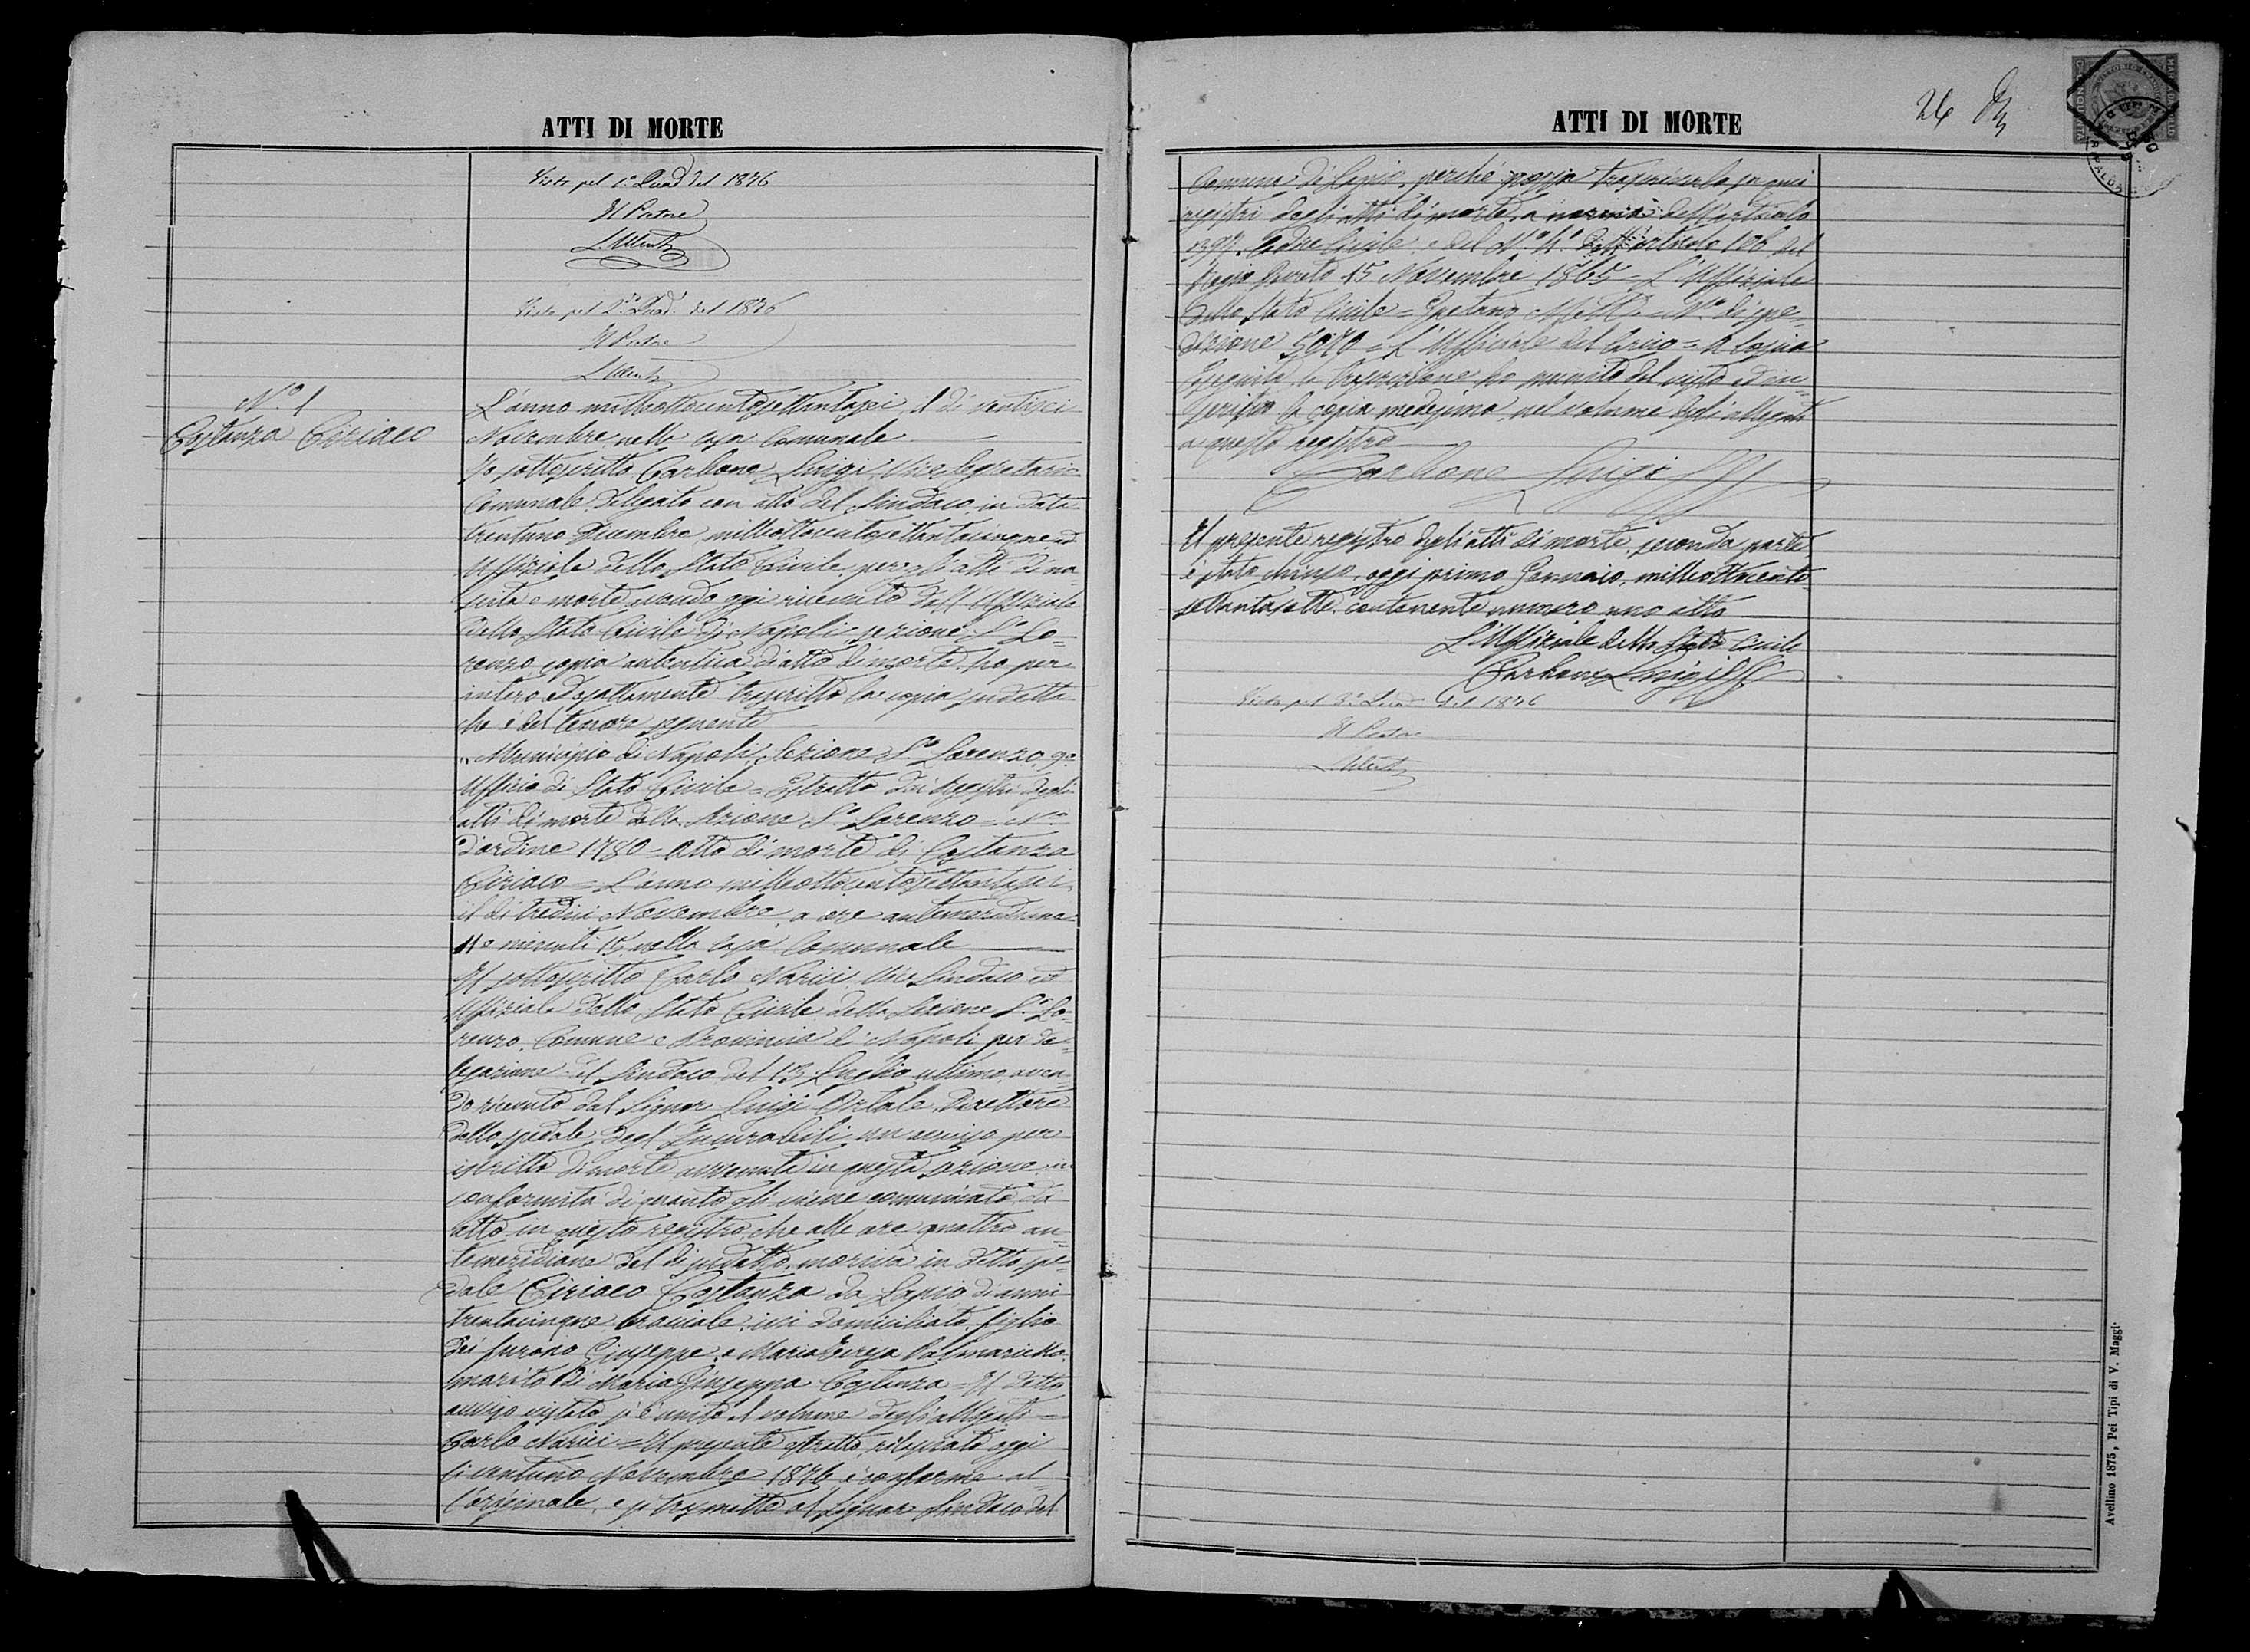 ATTI DI MORTE
Visto pel 1.° Quad. del 1876
Il Pretore
N.° 1
Costanza Ciriaco
Visto pel 2.° Quad. del 1876
Il Pretore
L'anno milleottocentosettantasei, il dì ventisei
Novembre nella casa Comunale
Io sottoscritto Carbone Luigi, Vice Segretario
Comunale delegato con atto del Sindaco in data
trentuno Dicembre milleottocentosettantacinque ad
Uffiziale dello Stato Civile per gli atti di na=
scita e morte avendo oggi ricevuto dall'Uffiziale
dello Stato Civile di Napoli, sezione S.o Lo=
renzo, copia autentica d'atto di morte, ho per
intero ed esattamente trascritto la copia sudetta
che è del tenore seguente
"Municipio di Napoli, Sezione S.o Lorenzo, 9.°
Uffizio di Stato Civile = Estratto dei registri degli
atti di morte della Sezione S.o Lorenzo = N.o
d'ordine 1780 = Atto di morte di Costanza
Ciriaco = L'anno milleottocentosettantasei,
il dì tredici Novembre a ore antemeridiane
11 e minuti 15, nella Casa Comunale
Il sottoscritto Carlo Narici Vice Sindaco ed
Uffiziale dello Stato Civile della Sezione S.o Lo=
renzo, Comune e Provincia di Napoli per de=
legazione del Sindaco del 13 Luglio ultimo, aven=
do ricevuto dal Signor Luigi Ortale, Direttore
dello spedale degl'Incurabili un avviso per
iscritto di morte avvenuta in questa sezione, in
conformità di quanto gli viene comunicato, dà
atto in questo registro, che alle ore quattro an=
temeridiane del dì sudetto, moriva in detto spe=
dale Ciriaco Costanza da Lapio di anni
trentacinque bracciale, ivi domiciliato, figlio
dei furono Giuseppe, e Maria Teresa Palmariello
marito di Maria Giuseppa Costanza = Il detto
avviso vistato si è unito al volume degli allegati =
Carlo Narici = Il presente estratto, rilasciato oggi
lì ventuno Novembre 1876 è conforme al=
l'originale, e si trasmette al Signor Sindaco del
ATTI DI MORTE
26
Comune di Lapio, perchè possa trascriverlo in quei
registri degli atti di morte, a norma dell'articolo
397 Codice Civile, e del N.° 4.° dell'articolo 106 del
Regio Decreto 15 Novembre 1865 = L'Uffiziale
dello Stato Civile = Gaetano = N.° di spe=
dizione 5970 = L'Uffiziale del Carico =
Eseguita la trascrizione ho munito del visto ed in=
serito la copia medesima nel volume degli allegati
a questo registro
Carbone Luigi
Il presente registro degli atti di morte, seconda parte
è stato chiuso, oggi primo Gennaio, milleottocento
settantasette, contenente numero uno atto
L'Uffiziale dello Stato Civile
Carbone Luigi
Visto pel 3.° Quad. del 1876
Il Pretore
Avellino 1875, Pei Tipi di V. Maggi.